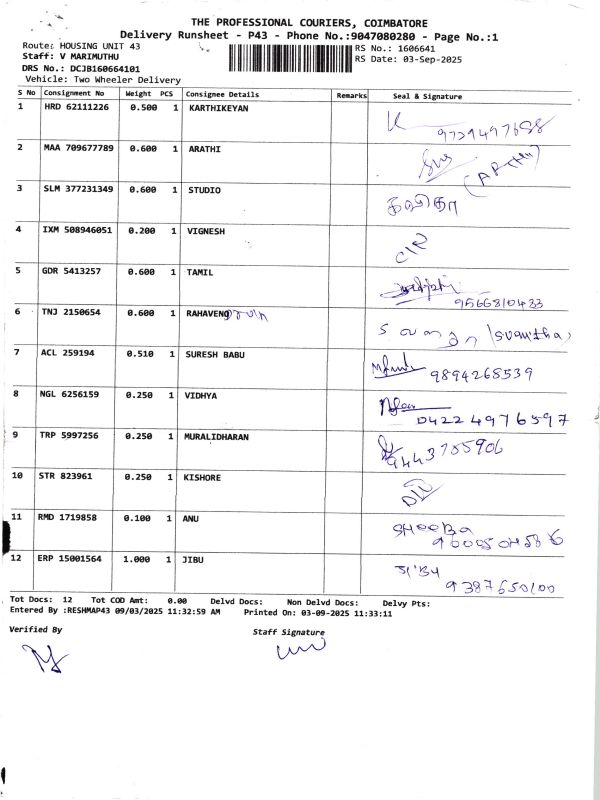 THE PROFESSIONAL COURIERS, COIMBATORE
Delivery Runsheet - P43 - Phone No.:9047080280 - Page No.:1
Route: HOUSING UNIT 43 RS No.: 1606641
Staff: V MARIMUTHU RS Date: 03-Sep-2025
DRS No.: DCJB160664101
Vehicle: Two Wheeler Delivery
S No Consignment No Weight PCS Consignee Details Remarks Seal & Signature
1 HRD 62111226 0.500 1 KARTHIKEYAN
2 MAA 709677789 0.600 1 ARATHI
3 SLM 377231349 0.600 1 STUDIO
4 IXM 508946051 0.200 1 VIGNESH
5 GDR 5413257 0.600 1 TAMIL
9566810433
6 TNJ 2150654 0.600 1
7 ACL 259194 0.510 1 SURESH BABU
9894268539
8 NGL 6256159 0.250 1 VIDHYA
0422 4976597
9 TRP 5997256 0.250 1 MURALIDHARAN
9443755906
10 STR 823961 0.250 1 KISHORE
11 RMD 1719858 0.100 1 ANU
SHEEBA
12 ERP 15001564 1.000 1 JIBU
9387650100
Tot Docs: 12 Tot COD Amt: 0.00 Delvd Docs: Non Delvd Docs: Delvy Pts:
Entered By :RESHMAP43 09/03/2025 11:32:59 AM Printed On: 03-09-2025 11:33:11
Verified By Staff Signature